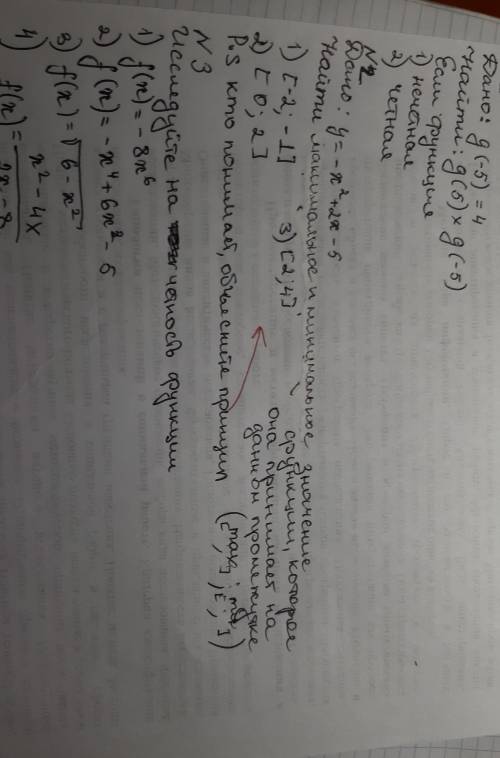 Дано: g(-5) = 4
Найти: g(5) × g(-5)
Если функция
1) нечётная
2) чётная
N2
Дано: y = -x² + 2x - 5
Найти максимальное и минимальное значение
функции, которое
она принимает на
данном промежутке
1) [-2; -1] 3) [2; 4]
2) [0; 2]
P.S кто понимает, объясните принцип
([max]; [min])
N 3
Исследуйте на чётность функции
1) f(x) = -8x⁶
2) f(x) = -x⁴ + 6x² - 5
3) f(x) = √6 - x²
4) f(x) = x² - 4x / 2x - 8